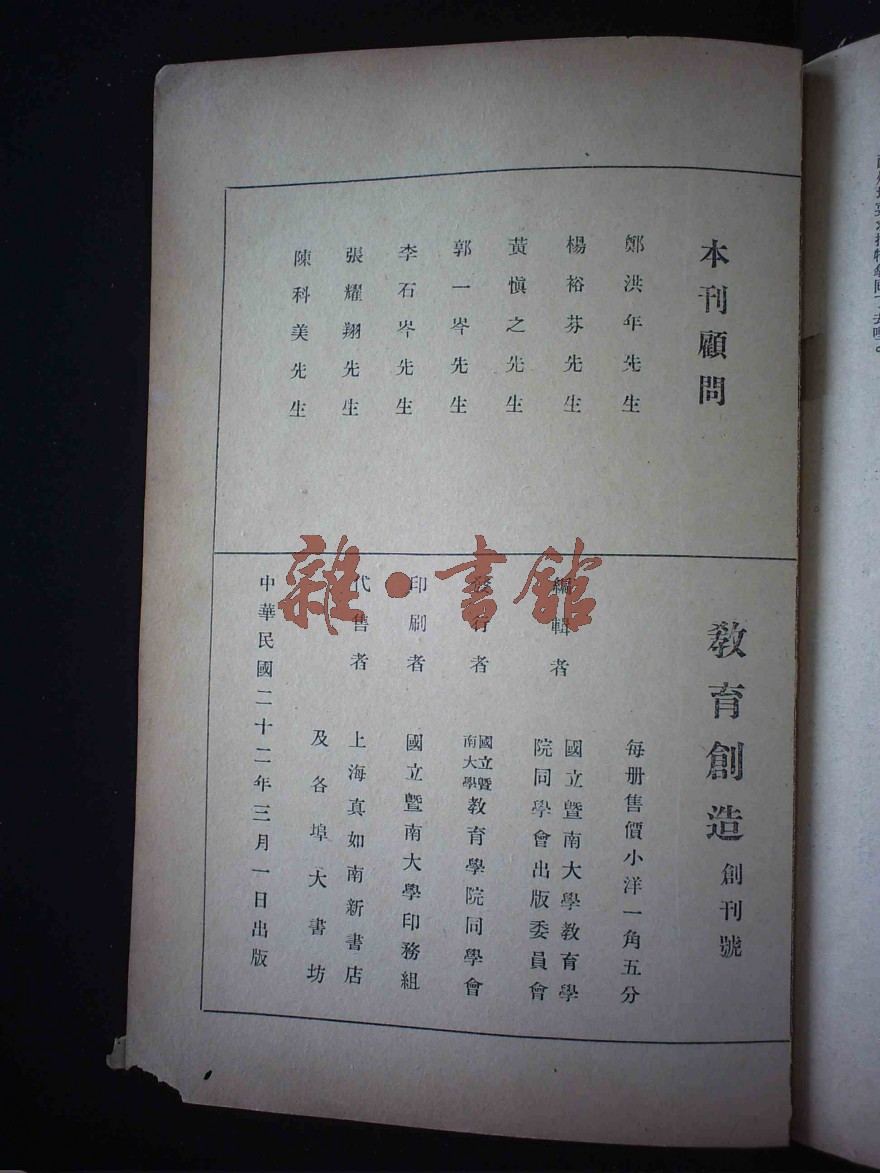 本刊顧問
鄭洪年先生
楊裕芬先生
黃愼之先生
郭一岑先生
李石岑先生
張耀翔先生
陳科美先生
教育創造 創刊號
每册售價小洋一角五分
編輯者 國立暨南大學教育學
院同學會出版委員會
發行者 國立暨南大學教育學院同學會
印刷者 國立暨南大學印務組
代售者 上海真如南新書店
及各埠大書坊
中華民國二十二年三月一日出版
雜·書館